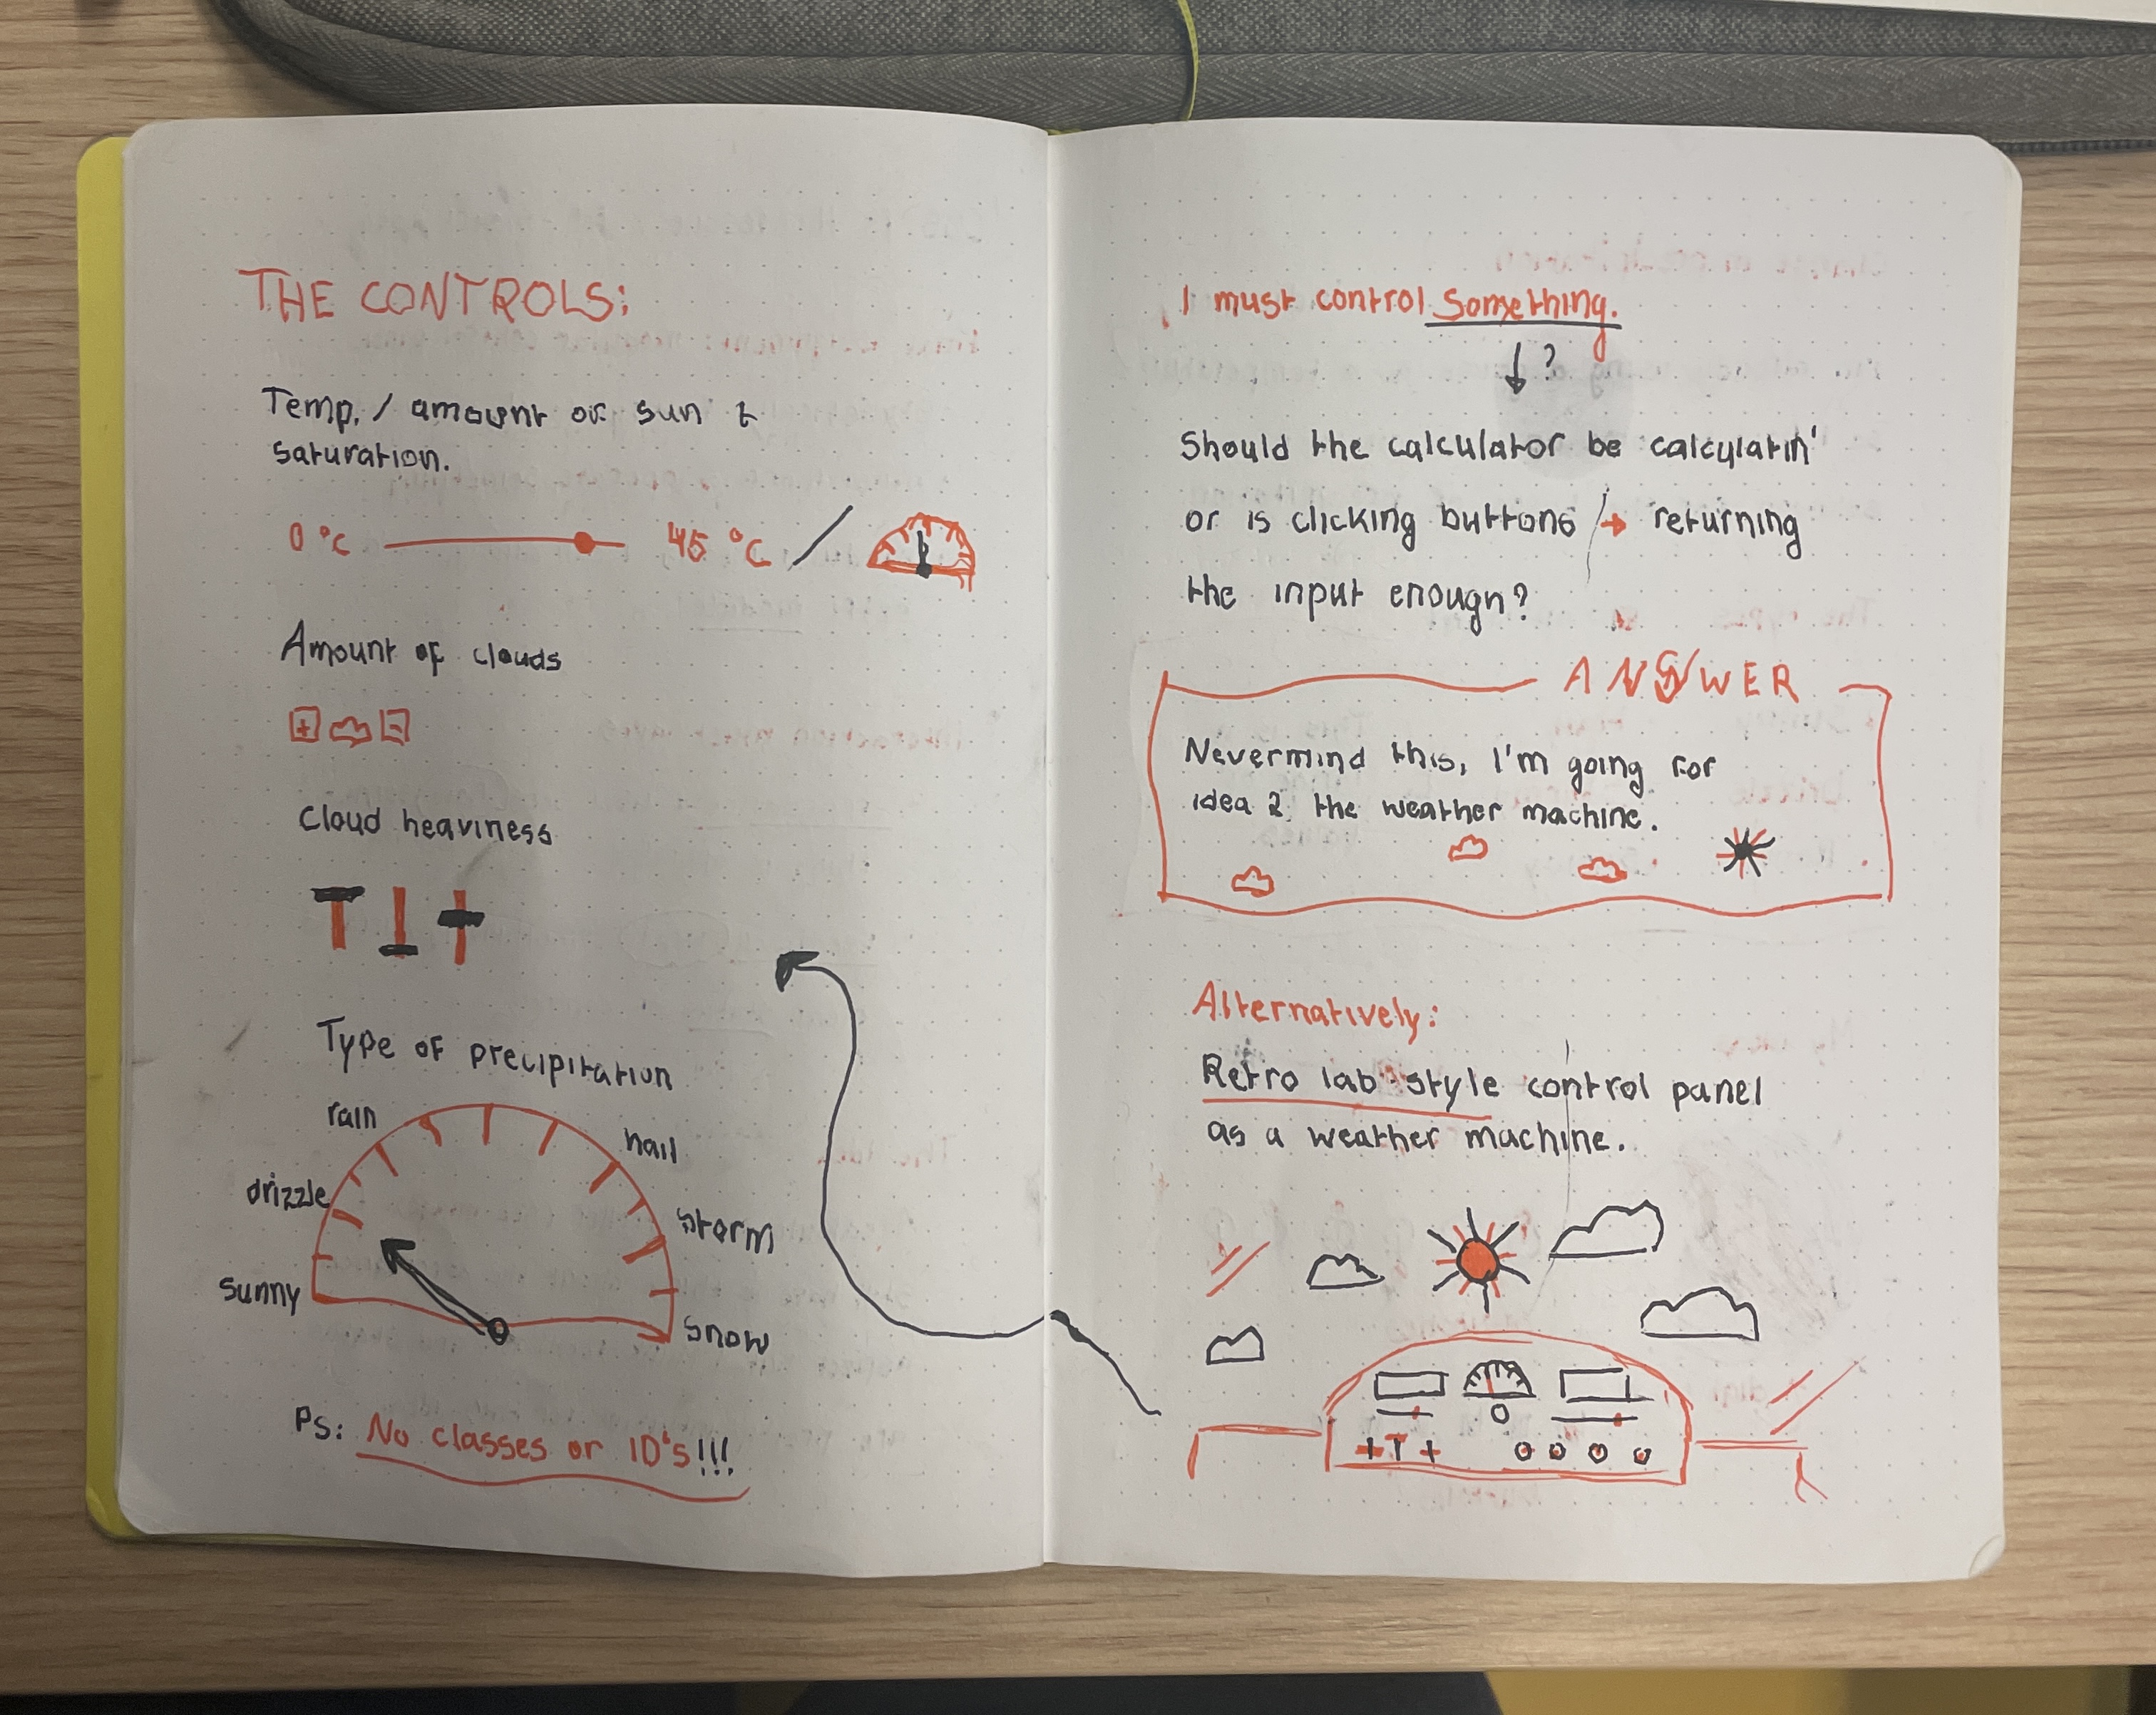 THE CONTROLS:
Temp. / amount of sun &
saturation.
0 °C 45 °C /
Amount of clouds
+ -
Cloud heaviness
Type of precipitation
rain
hail
drizzle
storm
sunny
snow
Ps: No classes or ID's!!!
I must control something.
?
Should the calculator be calculatin'
or is clicking buttons → returning
the input enough?
ANSWER
Nevermind this, I'm going for
idea 2. the weather machine.
Alternatively:
Retro lab style control panel
as a weather machine.